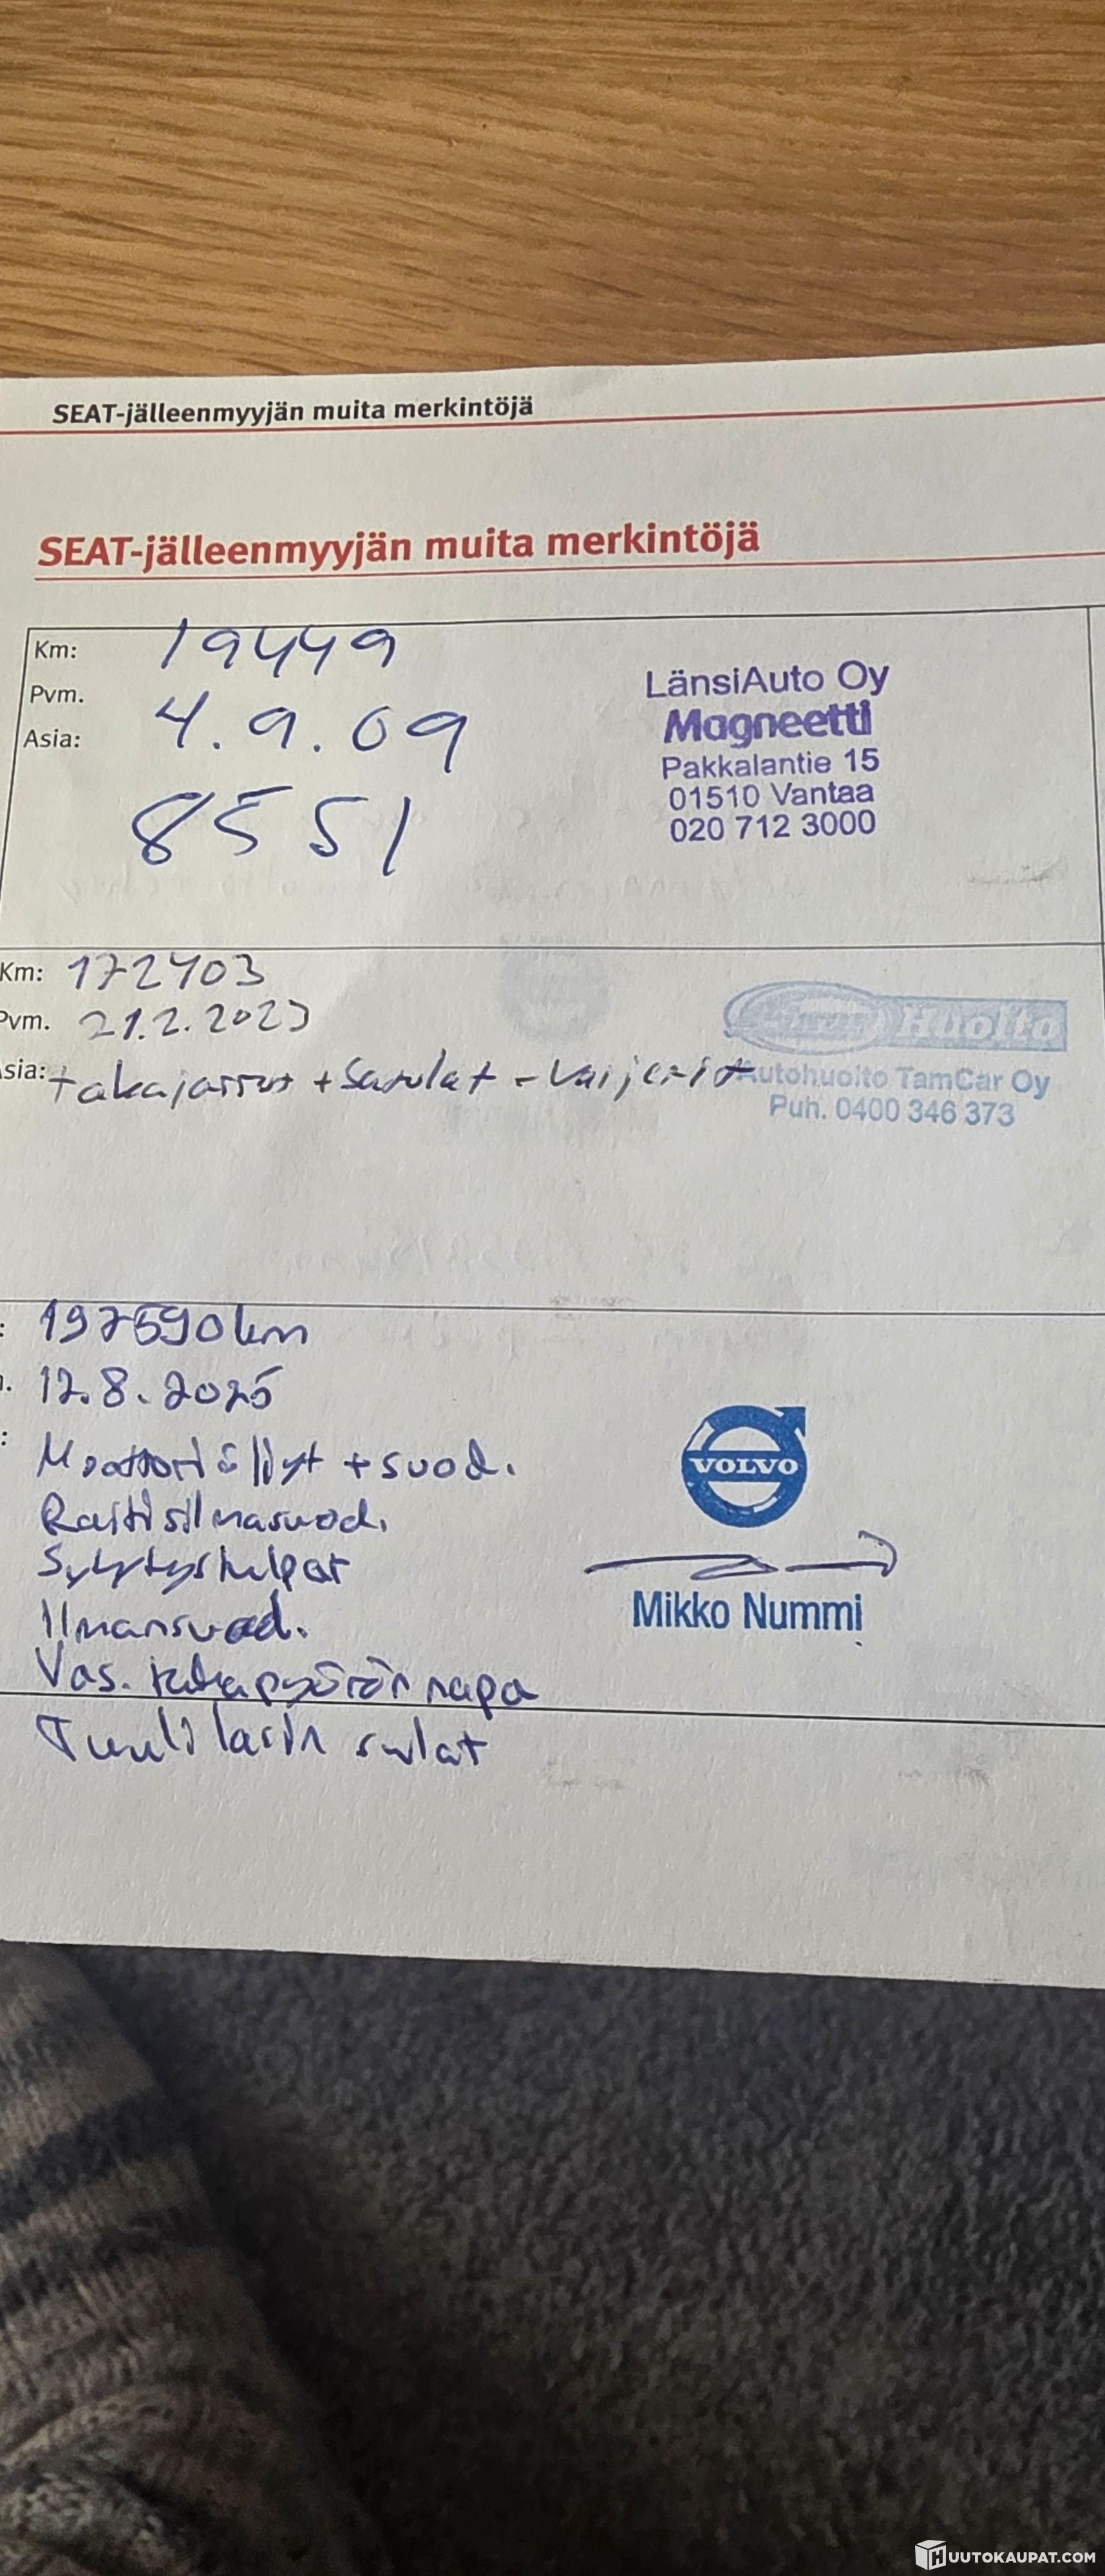 SEAT-jälleenmyyjän muita merkintöjä
SEAT-jälleenmyyjän muita merkintöjä
Km: 19449
Pvm. 4.9.09
Asia:
8551
LänsiAuto Oy
Magneetti
Pakkalantie 15
01510 Vantaa
020 712 3000
Km: 172403
Pvm. 21.2.2023
Asia: takajarrut + satulat - vaijerit
Huolto
Autohuolto TamCar Oy
Puh. 0400 346 373
: 197590km
. 12.8.2025
: Moottoriöljyt + suod.
Raitisilmasuod.
Sytytystulpat
Ilmansuod.
Vas. takapyörän napa
Tuulilasin sulat
VOLVO
Mikko Nummi
HUUTOKAUPAT.COM